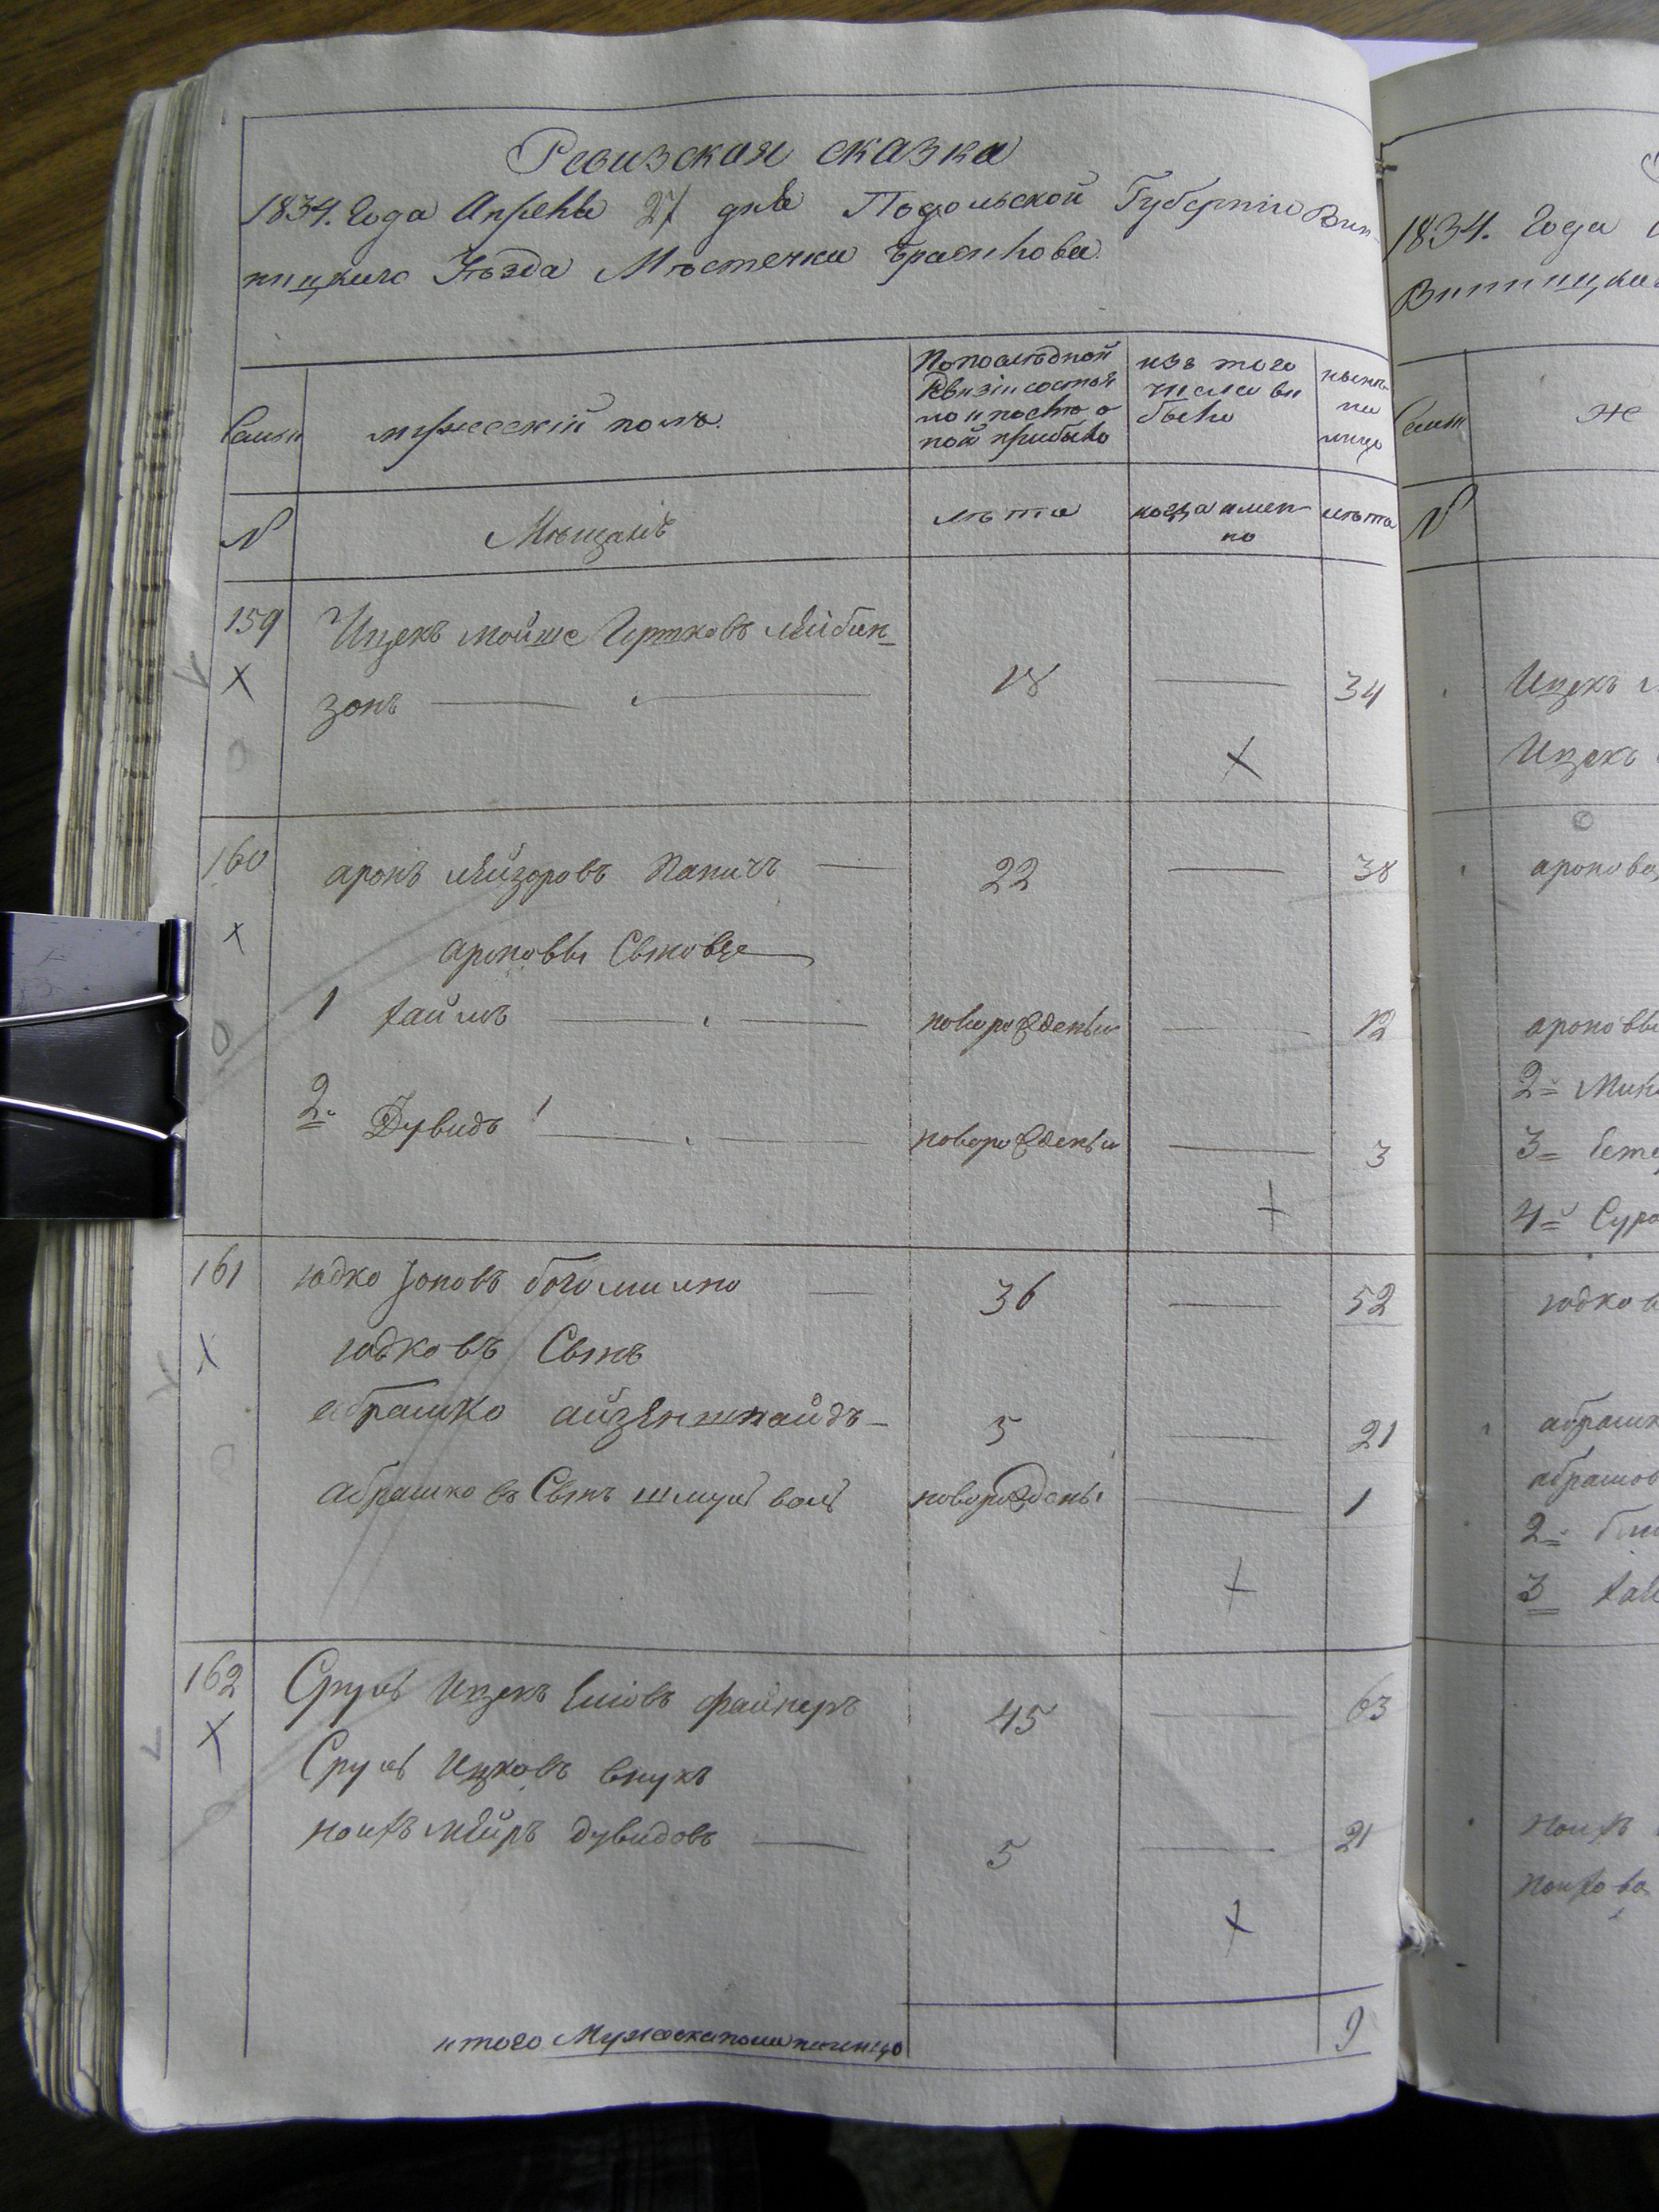 Ревизская сказка
1834. Года Апреля 27 дня Подольской Губернии Вин-
ницкаго Уезда Местечка Браилова
Семьи
мужеский полъ.
По последной
Ревизіи состоя
ло и после о
ной прибыло
изъ того
числа вы
было
ныне
на
лицо
№
Мещанъ
лета
когда имен-
но
лета
159
Ицекъ Мойше Гершковъ Лейбин-
зонъ
18
34
160
аронъ Лейзоровъ Папичъ
22
38
ароновы Сыновья
1 хаимъ
новорожденый
12
2. Дувидъ
новорожденый
3
161
юдко Іоновъ богомилно
36
52
юдковъ Сынъ
абрашко айзенштайдъ
5
21
абрашковъ Сынъ шмуль вольф
новорожденый
1
162
Сруль Ицекъ Еліовъ файнеръ
45
63
Сруль Ицковъ внукъ
Ноихъ Мейръ дувидовъ
5
21
итого Мужеска пола на лицо
9
1834. Года
Винницкаго
Семьи
Же
№
Ицекъ
Ицекъ
аронова
ароновы
2
3
4 Сура
юдков
абрашк
абрашов
2
3
Ноихъ
Ноихова